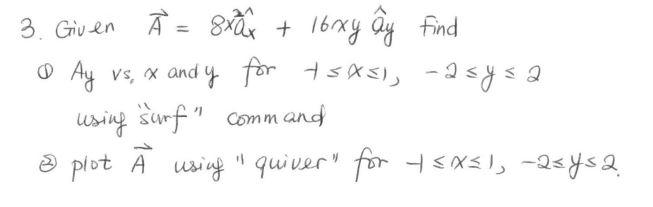 3. Given A⃗ = 8x²âx + 16xy ây find
① Ay vs, x and y for -1≤x≤1, -2≤y≤2
using "surf" command
② plot A⃗ using "quiver" for -1≤x≤1, -2≤y≤2.